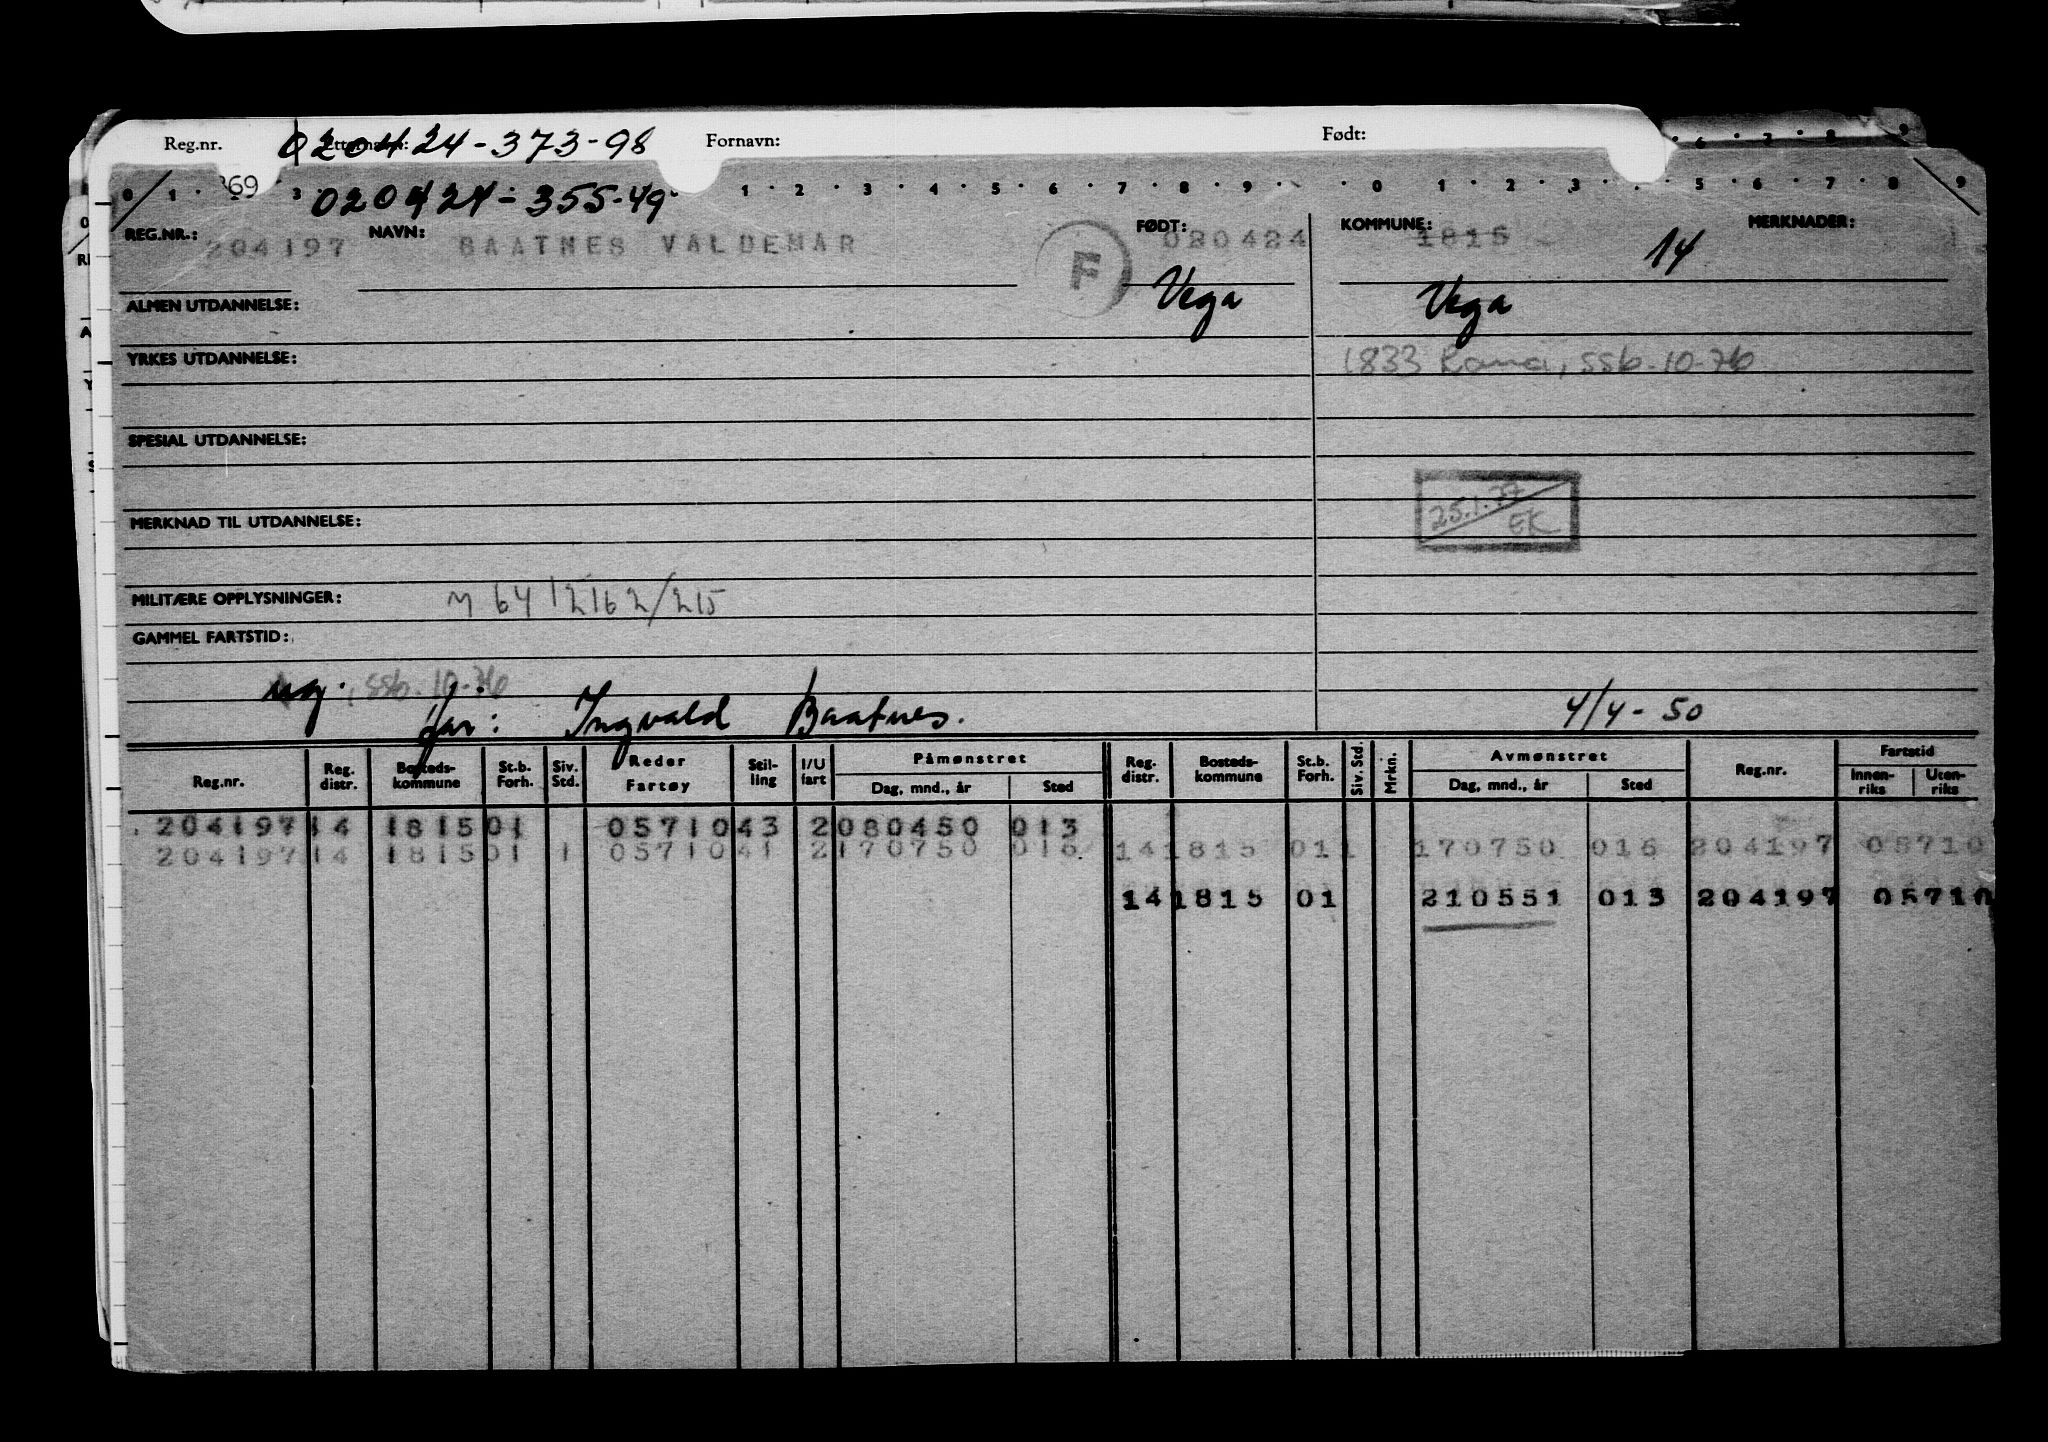 Reg.nr. 020424-373-98 Fornavn: Født:
6 7 8 9
0 1 369 3 020424-355-49 1 2 3 4 5 6 7 8 9 0 1 2 3 5 6 7 8 9
REG.NR.: 204197 NAVN: BAATNES VALDEMAR F FØDT: 020424 KOMMUNE: 1815 14 MERKNADER: 1
ALMEN UTDANNELSE: Vega Vega
YRKES UTDANNELSE: 1833 Rana, ssb. 10-76
SPESIAL UTDANNELSE:
25.1.77 EK
MERKNAD TIL UTDANNELSE:
MILITÆRE OPPLYSNINGER: M 6412162/215
GAMMEL FARTSTID:
ug., ssb. 10-76
far: Ingvald Baatnes. 4/4-50
Reg.nr. Reg. distr. Bosteds-kommune St.b. Forh. Siv. Std. Reder Fartøy Stil-ling I/U fart Påmønstret Dag, mnd., år Sted Reg. distr. Bosteds-kommune St.b. Forh. Siv. Std. Mrkn. Avmønstret Dag, mnd., år Sted Reg.nr. Fartstid Innen-riks Uten-riks
204197 14 1815 01 05710 43 2 080450 013
204197 14 1815 01 1 05710 41 2 170750 016 14 1815 01 1 170750 016 204197 05710
14 1815 01 210551 013 204197 05710